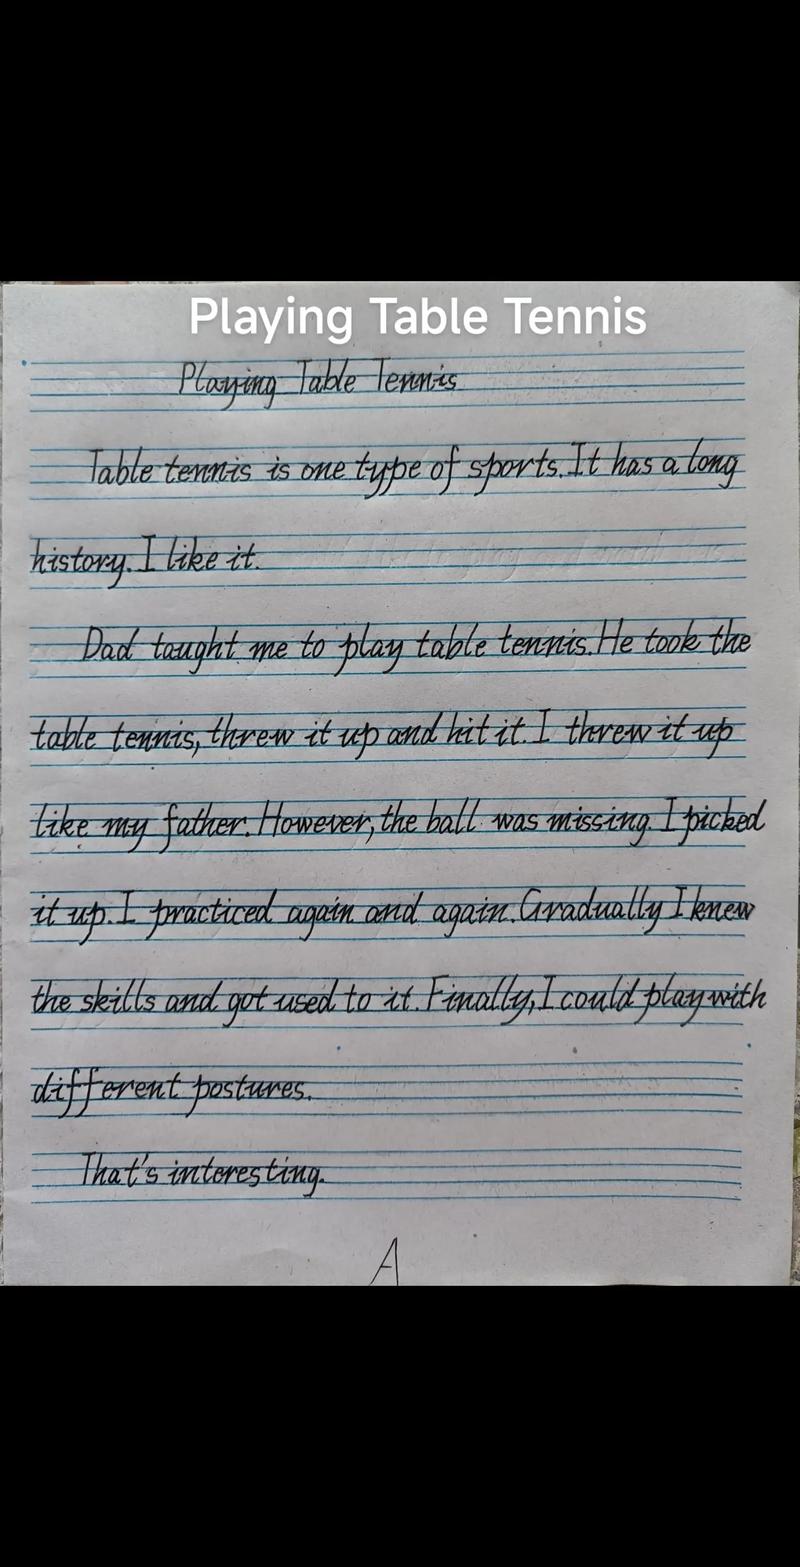 Playing Table Tennis
Playing Table Tennis
Table tennis is one type of sports. It has a long
history. I like it.
Dad taught me to play table tennis. He took the
table tennis, threw it up and hit it. I threw it up
like my father. However, the ball was missing. I picked
it up. I practiced again and again. Gradually I knew
the skills and got used to it. Finally, I could play with
different postures.
That's interesting.
A